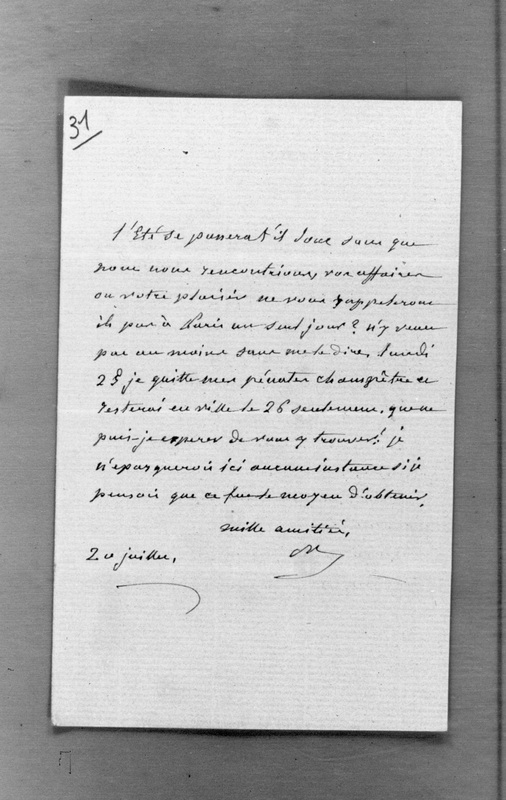 31
l'Eté se passerat'il donc sans que
nous nous rencontrions, vos affaires
ou votre plaisir ne vous rappeleront
ils pas à Paris un seul jour? n'y venez
pas au moins sans me le dire, lundi
25 je quitte mes pénates champêtre et
resterai en ville le 26 seulement, que ne
puis-je esperer de vous y trouver! je
n'epargnerois ici aucune instance si je
pensois que ce fut le moyen d'obtenir,
mille amitiés,
20 juillet,